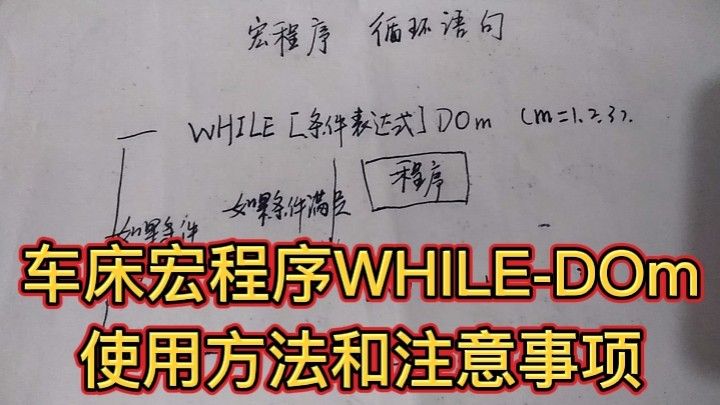 宏程序 循环语句
WHILE [条件表达式] DOm (m=1.2.3).
程序
如果条件满足
如果条件
车床宏程序WHILE-DOm
使用方法和注意事项